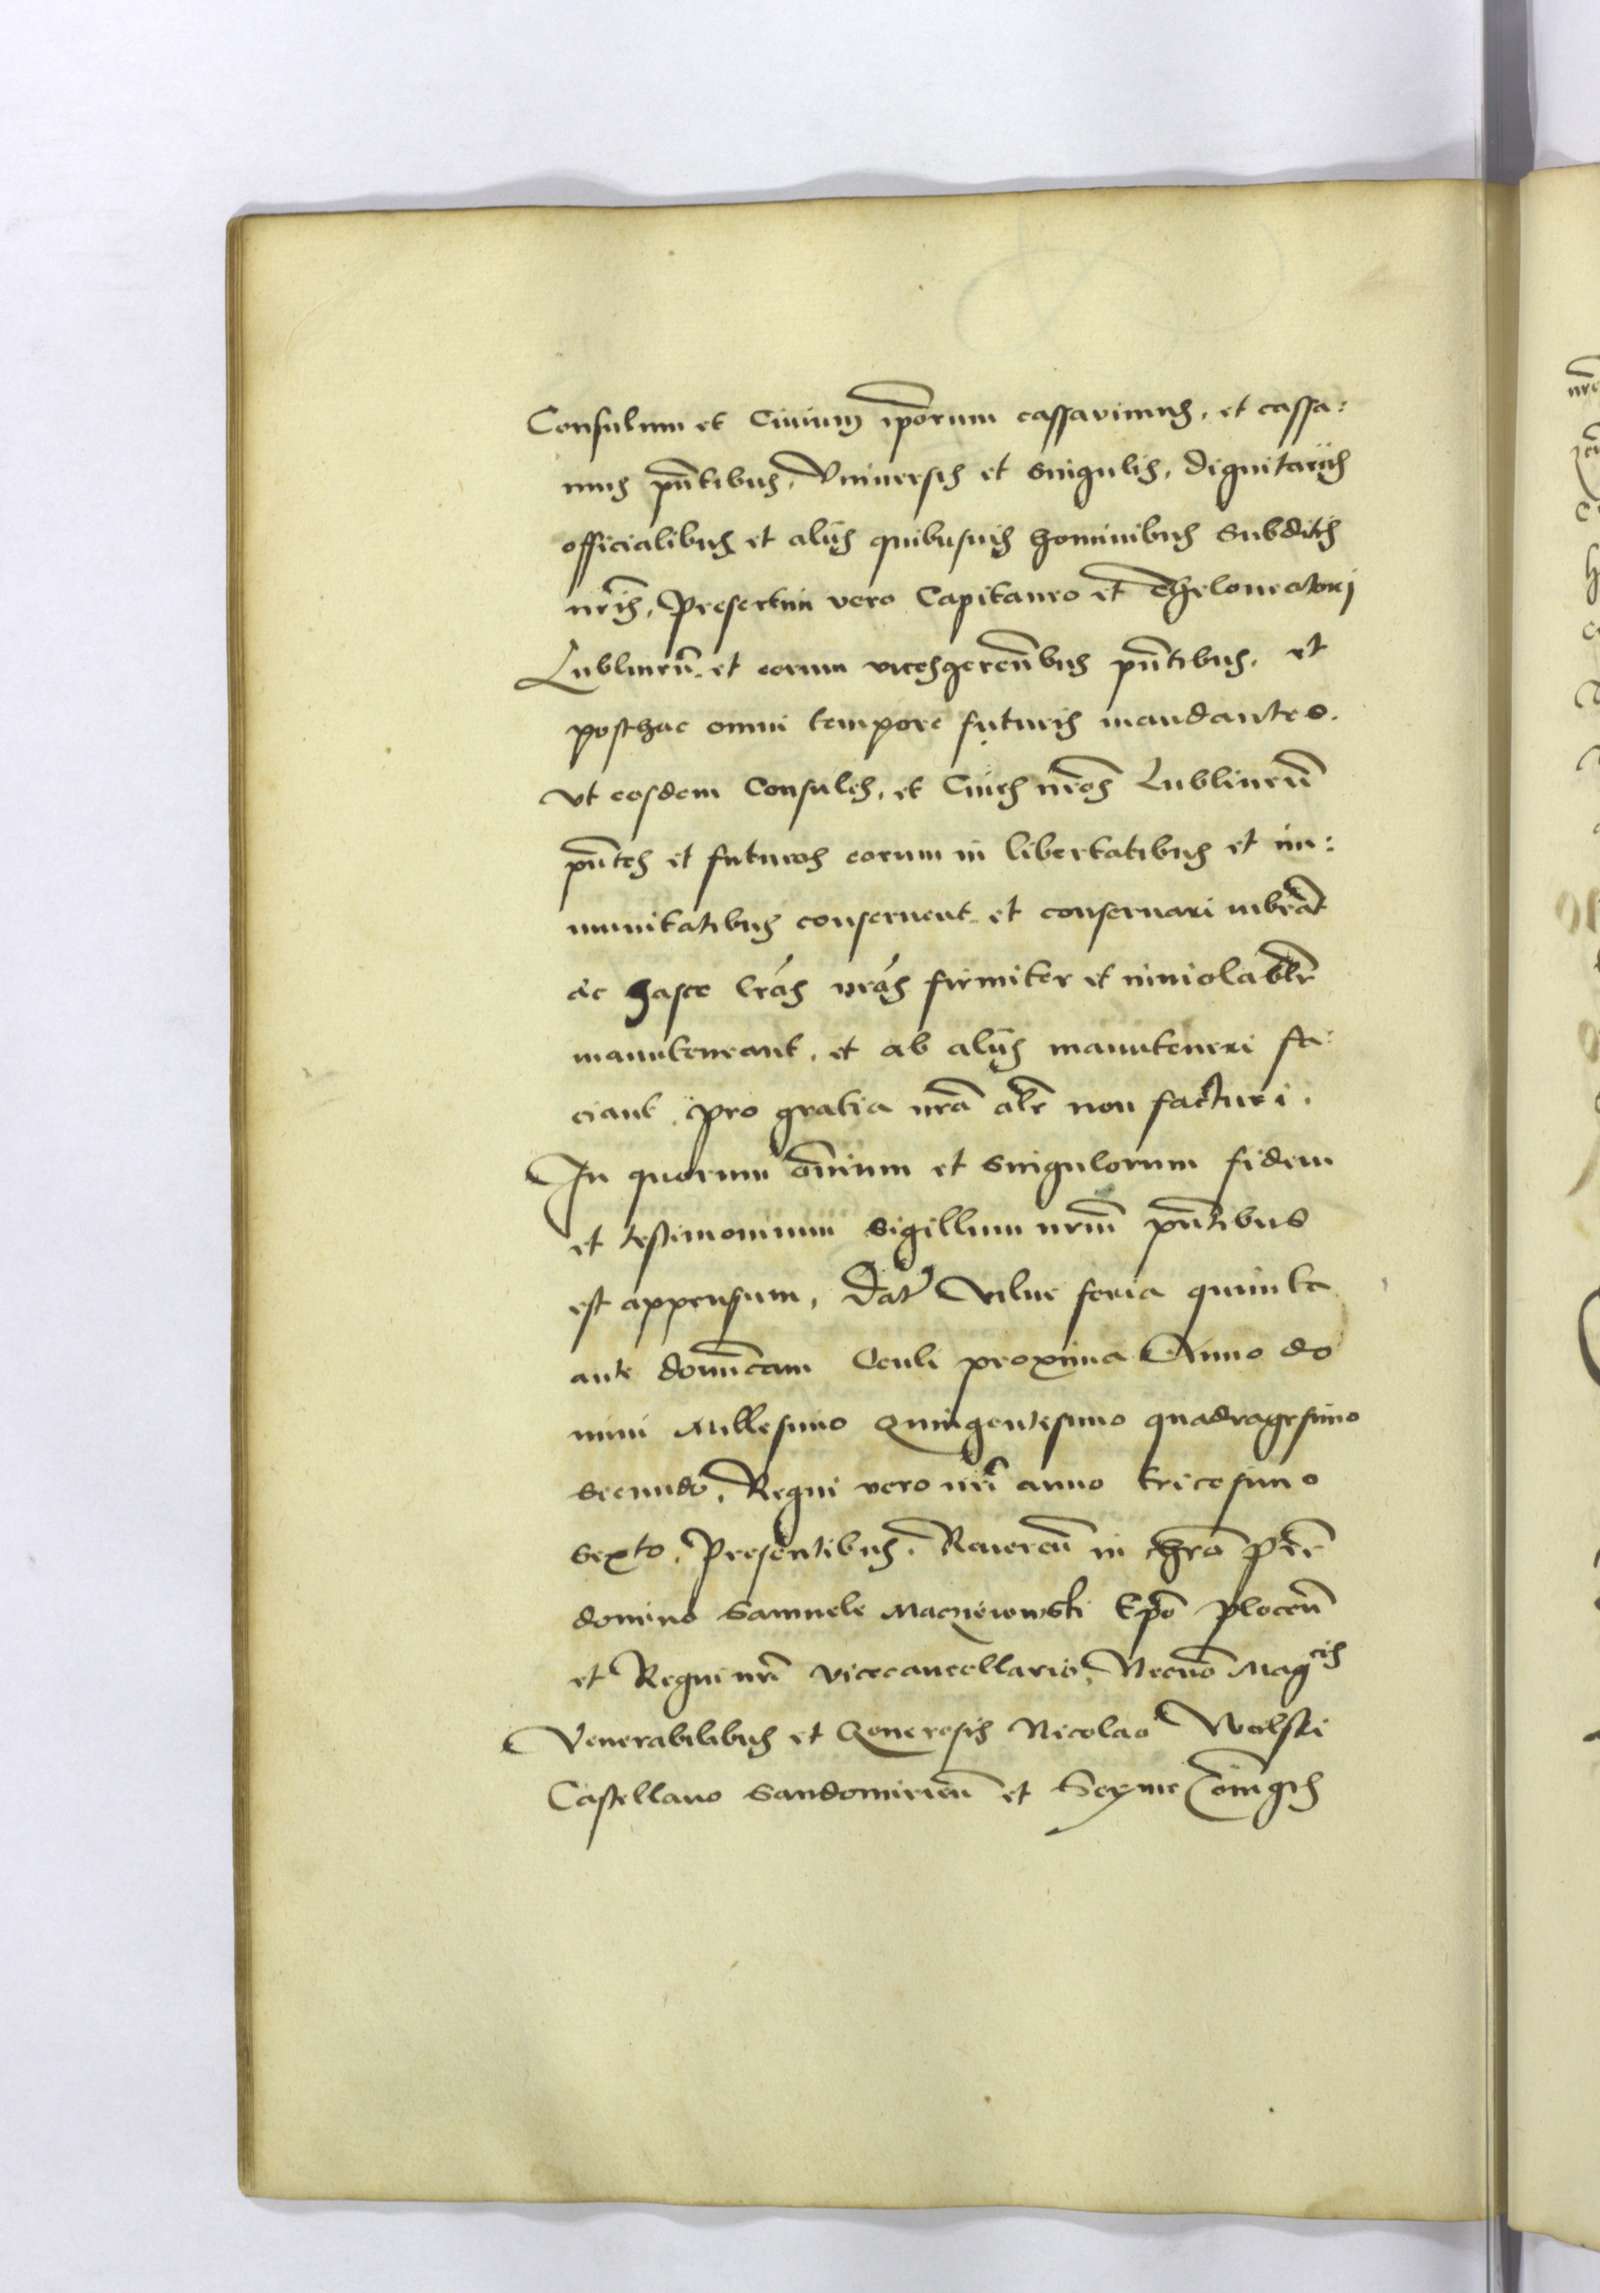 Consulum et Ciuium ip̄orum cassauimus, et cassa:
mus pn̄tibus, Vniuersis et singulis, dignitarijs
officialibus et alijs quibusuis hominibus subditis
nr̄is, Presertim vero Capitaneo et Theloneatori
Lublineñ. et eorum vicesgereñbus pn̄tibus, et
posthac omni tempore futuris mandantes.
vt eosdem Consules, et Ciues nr̄os Lublineñ
pn̄tes et futuros eorum in libertatibus et im:
munitatibus conseruent. et conseruari iubeāt
ac hasce lr̄as nr̄as firmiter et inuiolablr̄
manuteneant, et ab alijs manuteneri fa:
ciant, pro gratia nr̄a alr̄ non facturi.
In quorum om̄ium et singulorum fidem
et testimonium sigillum nr̄um pn̄tibus
est appensum, Dat̄ Vilne feria quinta
ante domīcam Oculi proxima Anno do
mini Millesimo Quingentesimo quadragesimo
secundo, Regni vero nr̄i anno tricesimo
sexto. Presentibus. Reuereñ in chr̄o p̄re
domino Samuele Macziewowski Ep̄o Ploceñ
et Regni nr̄i vicecancellario, Necno Mag cis
Venerabilibus et Generosis Nicolao Wolski
Castellano Sandomirieñ et Serme